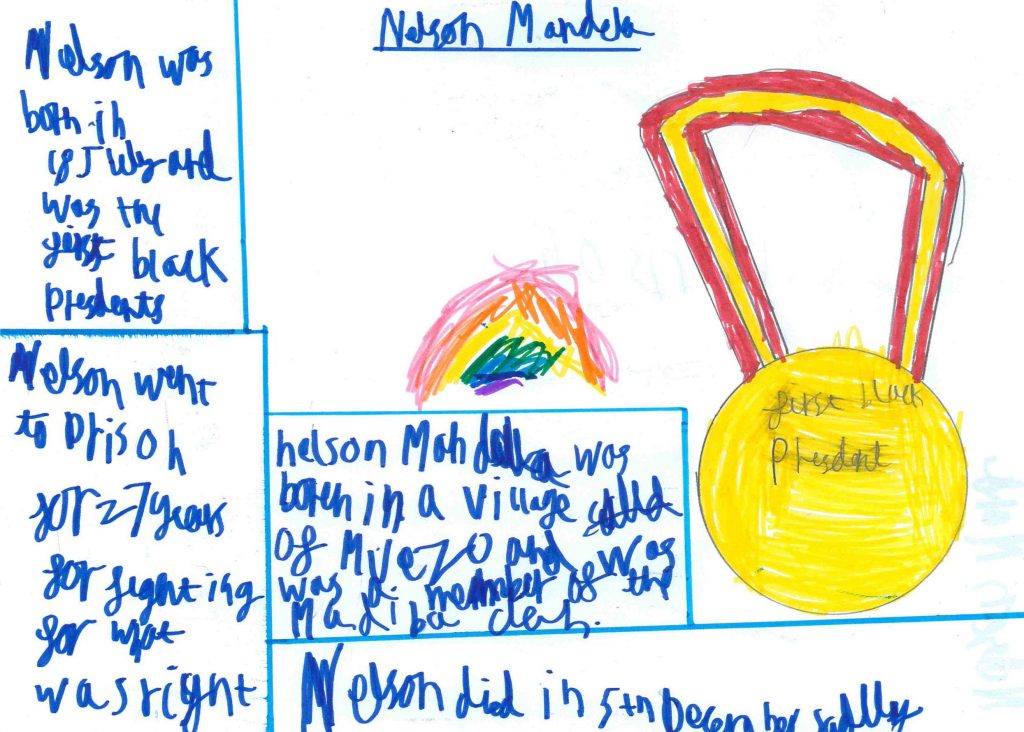 Nelson Mandela
Nelson was
born in
18 July and
was the
first black
Presdents
Nelson went
to prison
for 27 years
for fighting
for what
was right
nelson Mandela was
boren in a village called
of Mvezo and was
was a member of the
Madiba clan.
first black
Presdent
Nelson died in 5th December sadlly